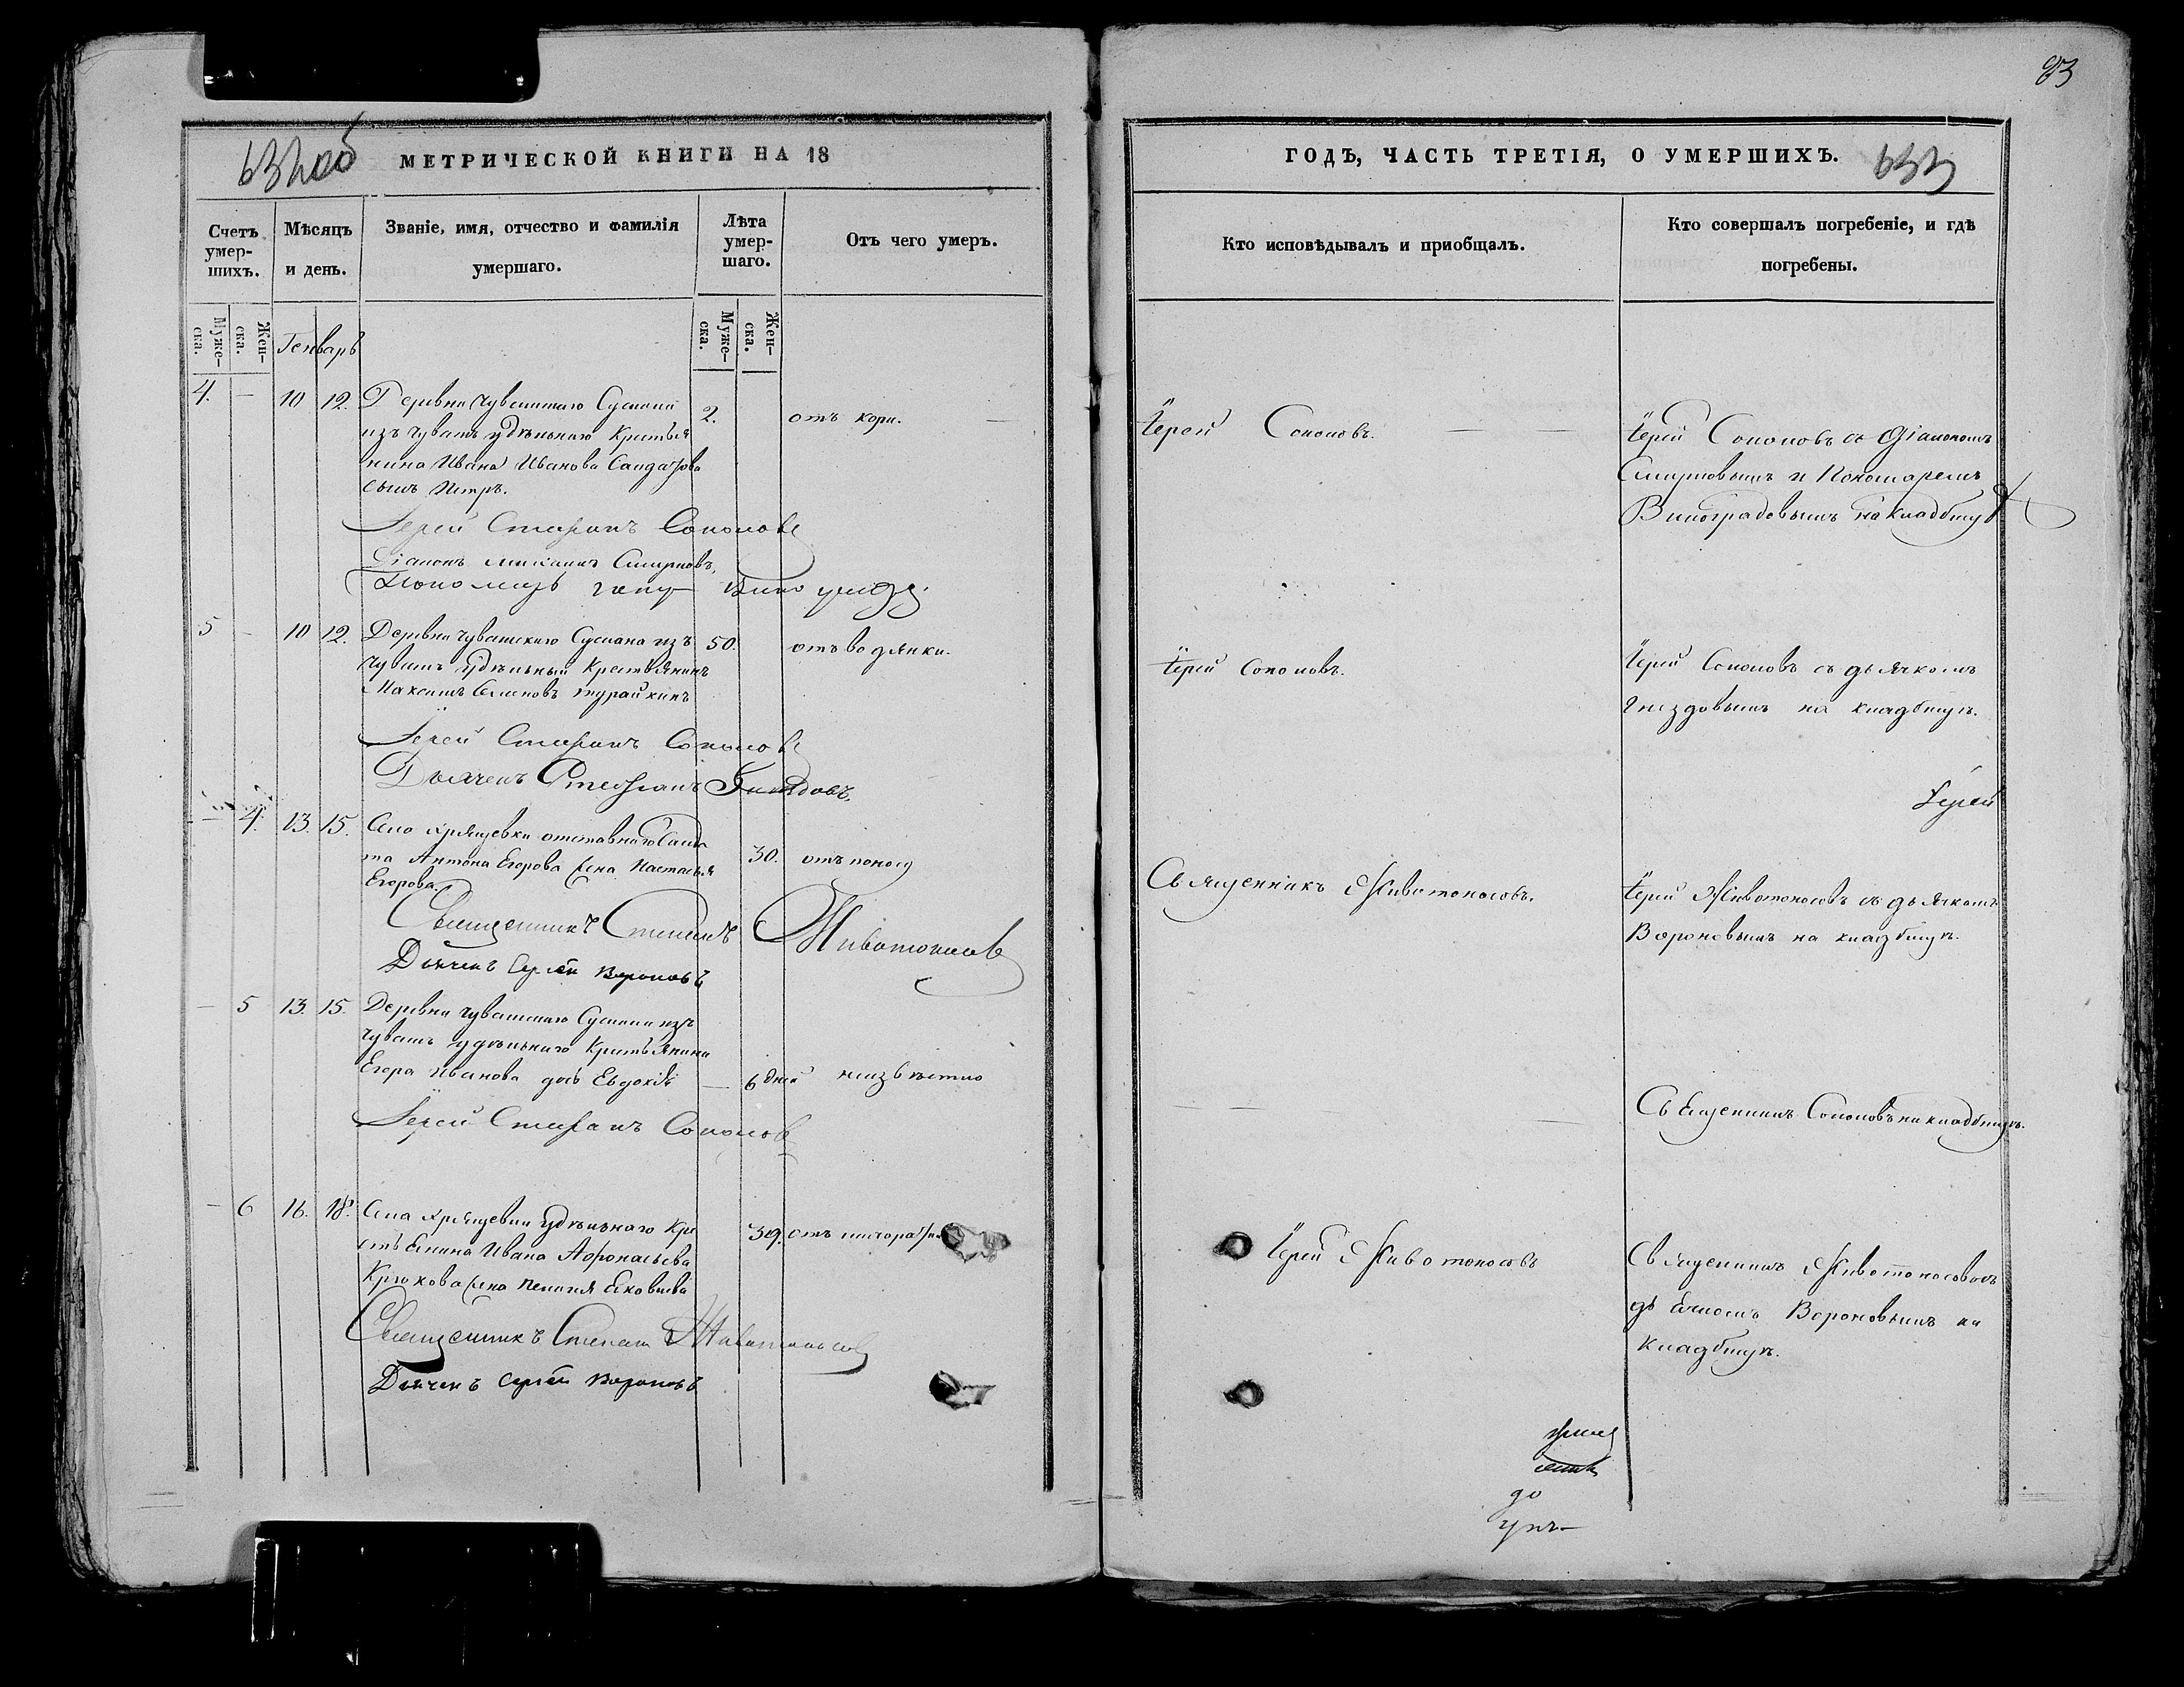 83
632об
МЕТРИЧЕСКОЙ КНИГИ НА 18
ГОДЪ, ЧАСТЬ ТРЕТІЯ, О УМЕРШИХЪ.
633
Счетъ умер-шихъ.
Мѣсяцъ и день.
Званіе, имя, отчество и фамилія умершаго.
Лѣта умер-шаго.
Отъ чего умеръ.
Кто исповѣдывалъ и приобщалъ.
Кто совершалъ погребеніе, и гдѣ погребены.
Муже-ска.
Жен-ска.
Генварь
Муже-ска.
Жен-ска.
4. — 10 12. Деревни Чувашскаго Сускана
изъ чувашъ удѣльнаго Крестья
нина Ивана Иванова Сандагрова
сынъ Петръ.
2.
отъ кори.
Іерей Соколовъ.
Іерей Соколовъ съ Діакономъ
Смирновымъ и Пономаремъ
Виноградовымъ на кладбищѣ
Іерей Стефанъ Соколовъ
Діаконъ Михаилъ Смирновъ,
Пономарь
5 — 10 12. Деревни Чувашскаго Сускана изъ
чувашъ удѣльный Крестьянинъ
Максимъ Семеновъ Турайкинъ
50.
отъ водянки.
Іерей Соколовъ.
Іерей Соколовъ съ дьячкомъ
Гнездовымъ на кладбищѣ.
Іерей Стефанъ Соколовъ
Дьячекъ Стефанъ Гнѣздовъ.
Іерей
— 4. 13. 15. Села Хрящевки отставнаго Солда
та Антона Егорова жена Настасья
Егорова.
30.
отъ поносу
Священникъ Животоносовъ.
Іерей Животоносовъ съ дьячкомъ
Вороновымъ на кладбищѣ.
Священникъ Стефанъ Животоносовъ
Дьячекъ Сергѣй Вороновъ
— 5 13. 15. Деревни Чувашскаго Сускана изъ
чувашъ удѣльнаго Крестьянина
Егора Иванова дочь Евдокія
— 6 дней
неизвѣстно
Священникъ Соколовъ на кладбищѣ.
Іерей Стефанъ Соколовъ
— 6 16. 18. Села Хрящевки удѣльнаго Кре
стьянина Ивана Афонасьева
Крюкова жена Пелагія Яковлева
39.
отъ
Іерей Животоносовъ
Священникъ Животоносовъ съ
дьячкомъ Вороновымъ на
кладбищѣ.
Священникъ Стефанъ Животоносовъ
Дьячекъ Сергѣй Вороновъ
до